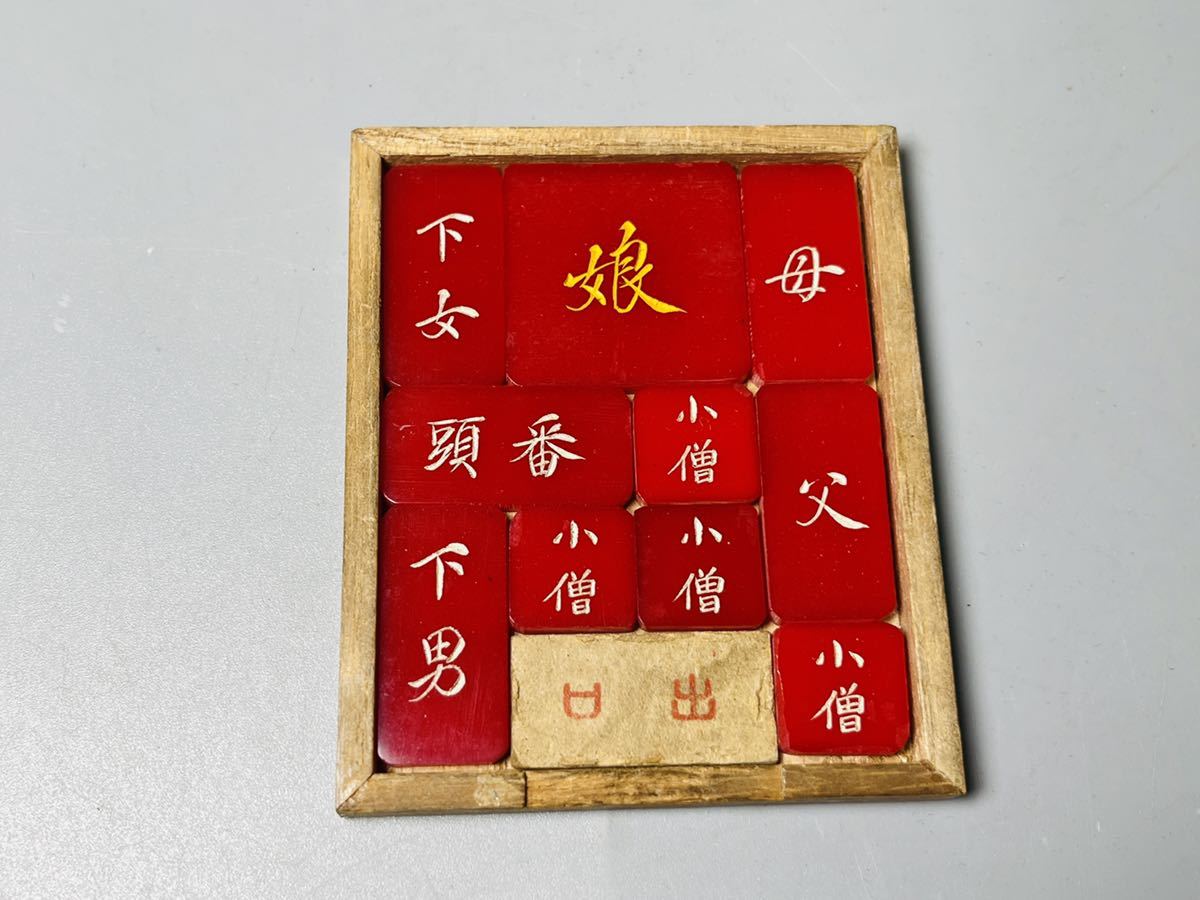 下女
娘
母
番頭
小僧
父
下男
小僧
小僧
出口
小僧